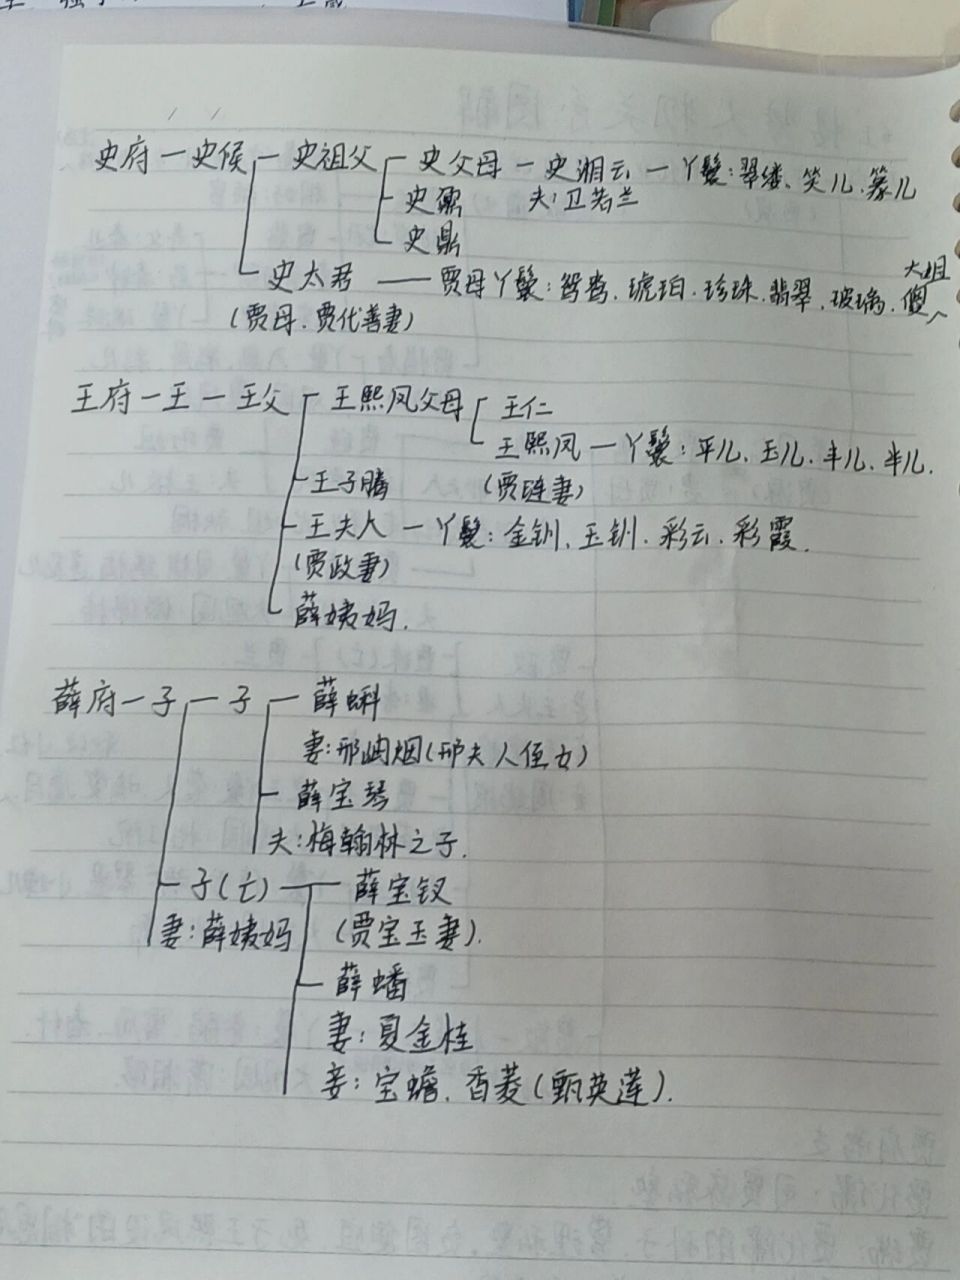 史府一史候一史祖父一史父母一史湘云一丫鬟:翠缕、笑儿.篆儿
史鼐 夫:卫若兰
史鼎
大姐
史太君 — 贾母丫鬟:鸳鸯.琥珀.珍珠.翡翠.玻璃.傻
(贾母.贾代善妻)
王府一王一王父 王熙凤父母 王仁
王熙凤一丫鬟:平儿、玉儿、丰儿、半儿.
王子腾 (贾琏妻)
王夫人一丫鬟:金钏、玉钏.彩云.彩霞.
(贾政妻)
薛姨妈.
薛府一子一子一薛蝌
妻:邢岫烟(邢夫人侄女)
薛宝琴
夫:梅翰林之子.
子(亡) — 薛宝钗
妻:薛姨妈 (贾宝玉妻).
薛蟠
妻:夏金桂
妾:宝蟾.香菱(甄英莲).